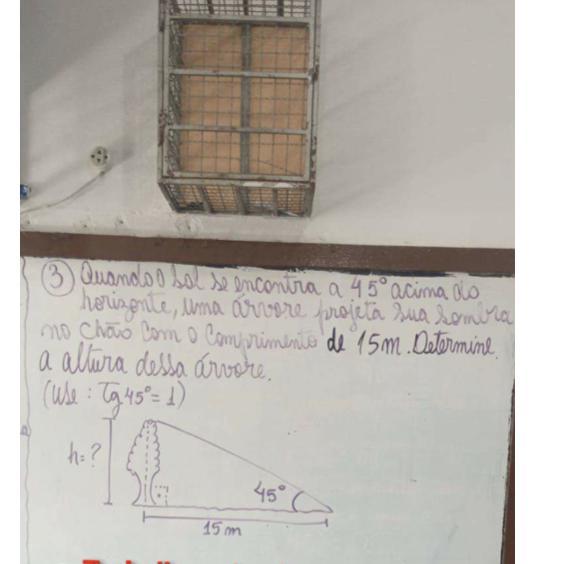 ③ Quando o sol se encontra a 45° acima do
horizonte, uma árvore projeta sua sombra
no chão com o comprimento de 15m. Determine
a altura dessa árvore.
(Use: Tg 45° = 1)
h = ?
45°
15m